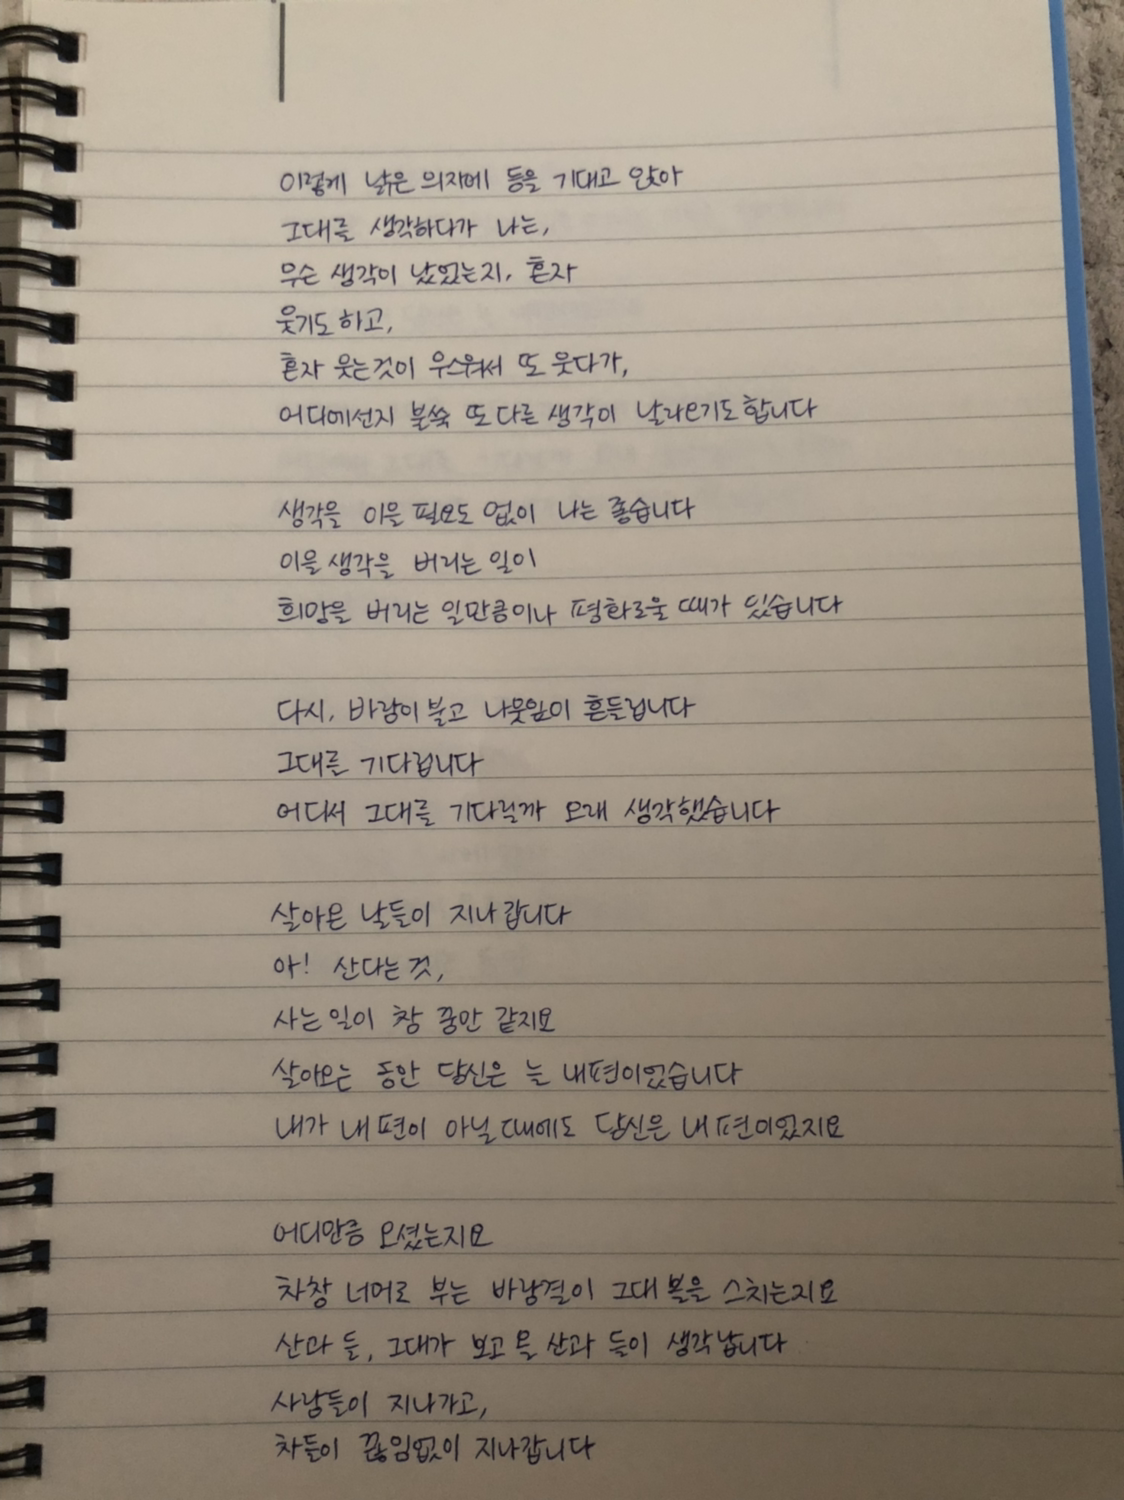 이렇게 낡은 의자에 등을 기대고 앉아
그대를 생각하다가 나는,
무슨 생각이 났었는지, 혼자
웃기도 하고,
혼자 웃는것이 우스워서 또 웃다가,
어디에선지 불쑥 또 다른 생각이 날라오기도 합니다
생각을 이을 필요도 없이 나는 좋습니다
이을 생각을 버리는 일이
희망을 버리는 일만큼이나 평화로울 때가 있습니다
다시, 바람이 불고 나뭇잎이 흔들립니다
그대를 기다립니다
어디서 그대를 기다릴까 오래 생각했습니다
살아온 날들이 지나갑니다
아! 산다는 것,
사는 일이 참 꿈만 같지요
살아오는 동안 당신은 늘 내편이었습니다
내가 내 편이 아닐 때에도 당신은 내 편이었지요
어디만큼 오셨는지요
차창 너머로 부는 바람결이 그대 볼을 스치는지요
산과 들, 그대가 보고 올 산과 들이 생각납니다
사람들이 지나가고,
차들이 끊임없이 지나갑니다